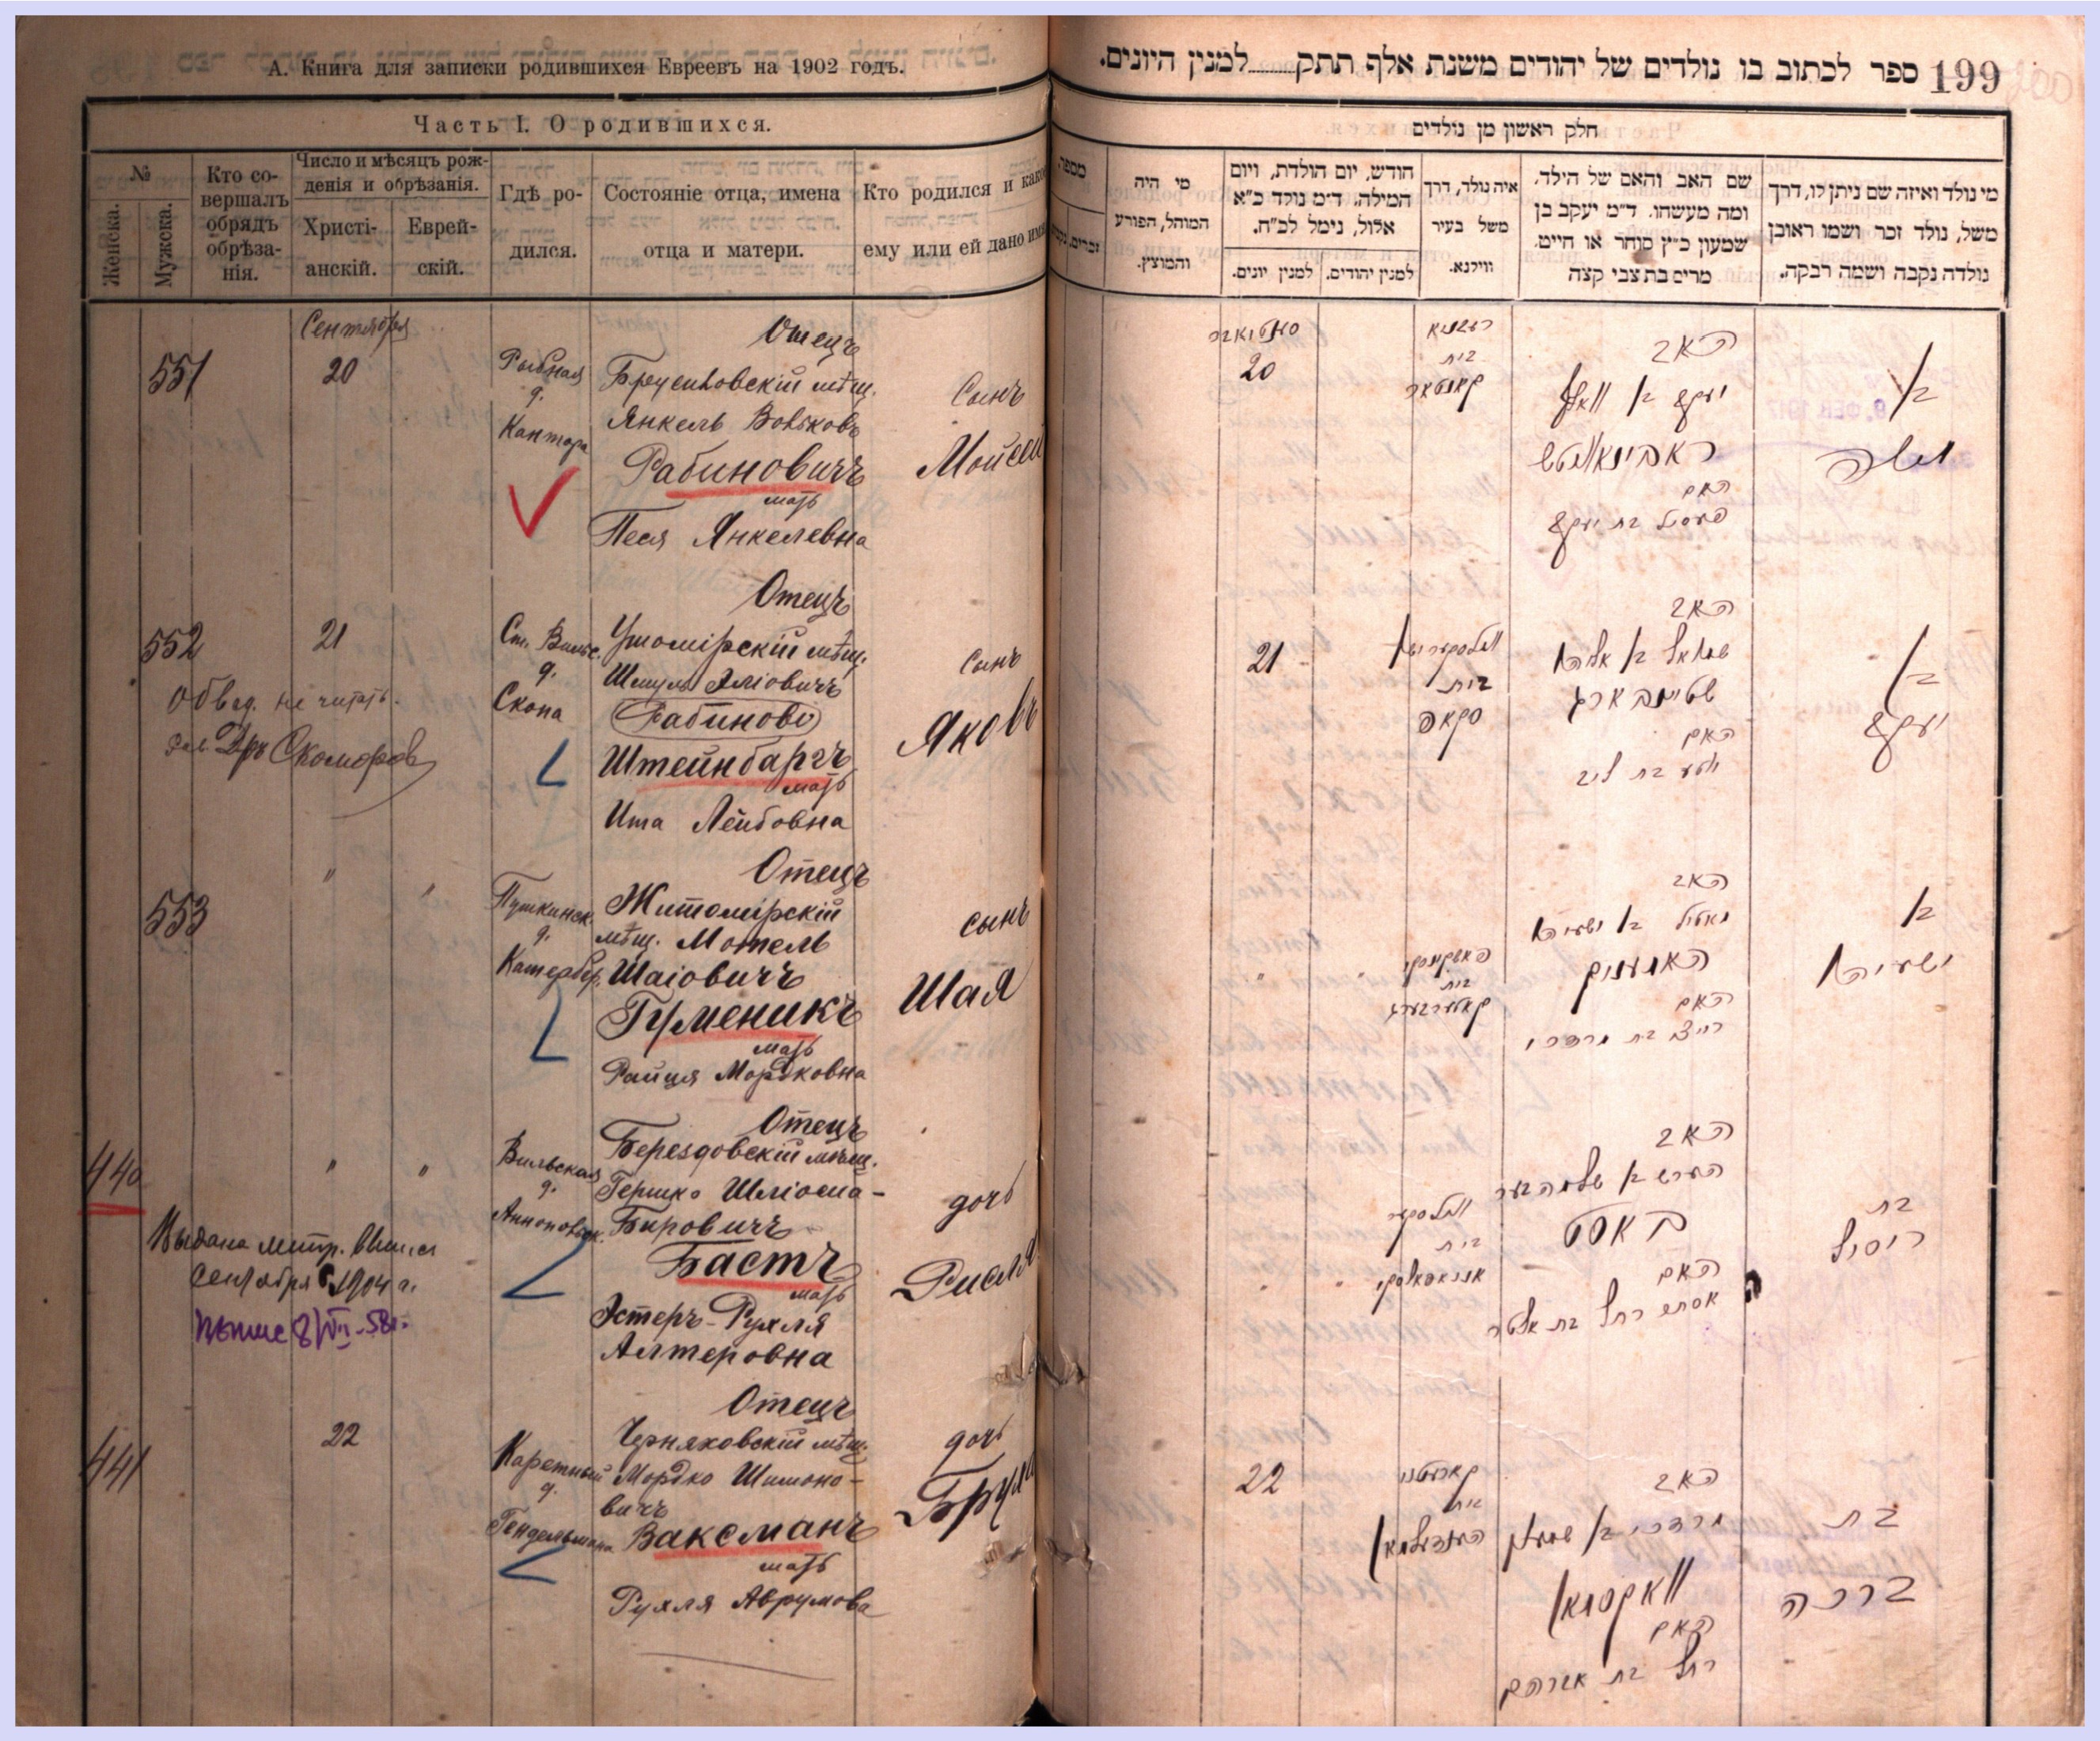 А. Книга для записки родившихся Евреевъ на 1902 годъ.
Часть I. О родившихся.
№
Женска.
Мужска.
Кто со-
вершалъ
обрядъ
обрѣза-
нія.
Число и мѣсяцъ рож-
денія и обрѣзанія.
Христі-
анскій.
Еврей-
скій.
Гдѣ ро-
дился.
Состояніе отца, имена
отца и матери.
Кто родился и како
ему или ей дано имя
Сентября
551
20
Рыбная
д.
Кантора
Отецъ
Брусиловскій мѣщ.
Янкель Вольковъ
Рабиновичъ
мать
Песя Янкелевна
Сынъ
Моисей
552
21
Ст. Вильс.
д.
Скопа
Отецъ
Ушомірскій мѣщ.
Шмуль Эліовичъ
Штейнбаргъ
мать
Ита Лейбовна
сынъ
Яковъ
не читать.
Скоморов
553
"
"
Пушкинск.
д.
Катербер.
Отецъ
Житомірскій
мѣщ. Мотель
Шаіовичъ
Гуменикъ
мать
Райця Мордковна
сынъ
Шая
440
"
"
Вильская
д.
Аннопольск.
Отецъ
Берездовскій мѣщ.
Гершко Шліома-
Бировичъ
Бастъ
мать
Эстеръ-Рухля
Алтеровна
дочь
Рисля
Выдана метр. выпись
сентября 1904 г.
441
22
Каретный
д.
Гендельмана
Отецъ
Черняховскій мѣщ.
Мордко Шимоно-
вичъ
Ваксманъ
мать
Рухля Аврумова
дочь
Бруха
199
ספר לכתוב בו נולדים של יהודים משנת אלף תתק......למנין היונים.
חלק ראשון מן נולדים
מי נולד ואיזה שם ניתן לו, דרך
משל, נולד זכר ושמו ראובן
נולדה נקבה ושמה רבקה.
שם האב והאם של הילד,
ומה מעשהו. ד״מ יעקב בן
שמעון כ״ץ סוחר או חייט,
מרים בת צבי קצה
איה נולד, דרך
משל בעיר
ווילנא.
חודש, יום הולדת, ויום
המילה. ד״מ נולד כ״א
אלול, נימל לכ״ח.
למנין יהודים.
למנין יונים.
מי היה
המוהל, הפורע
והמוצץ.
מספר
בן
משה
האב
יעקב בן וואלף
ראבינאוויטש
האם
פעסיל בת יעקב
בית
קאנטאר
20
בן
יעקב
האב
שמואל בן אליהו
שטיינבארג
האם
איטע בת ליב
בית
סקאפ
21
בן
ישעיהו
האב
מאטיל בן ישעיהו
האומעניק
האם
רייצע בת מרדכי
בית
קאטערבערג
"
בת
ריסיל
האב
הערש בן שלמה בער
באסט
האם
אסתר רחל בת אלטר
בית
"
בת
ברכה
האב
מרדכי בן שמעון
וואקסמאן
האם
רחל בת אברהם
בית
הענדעלמאן
22